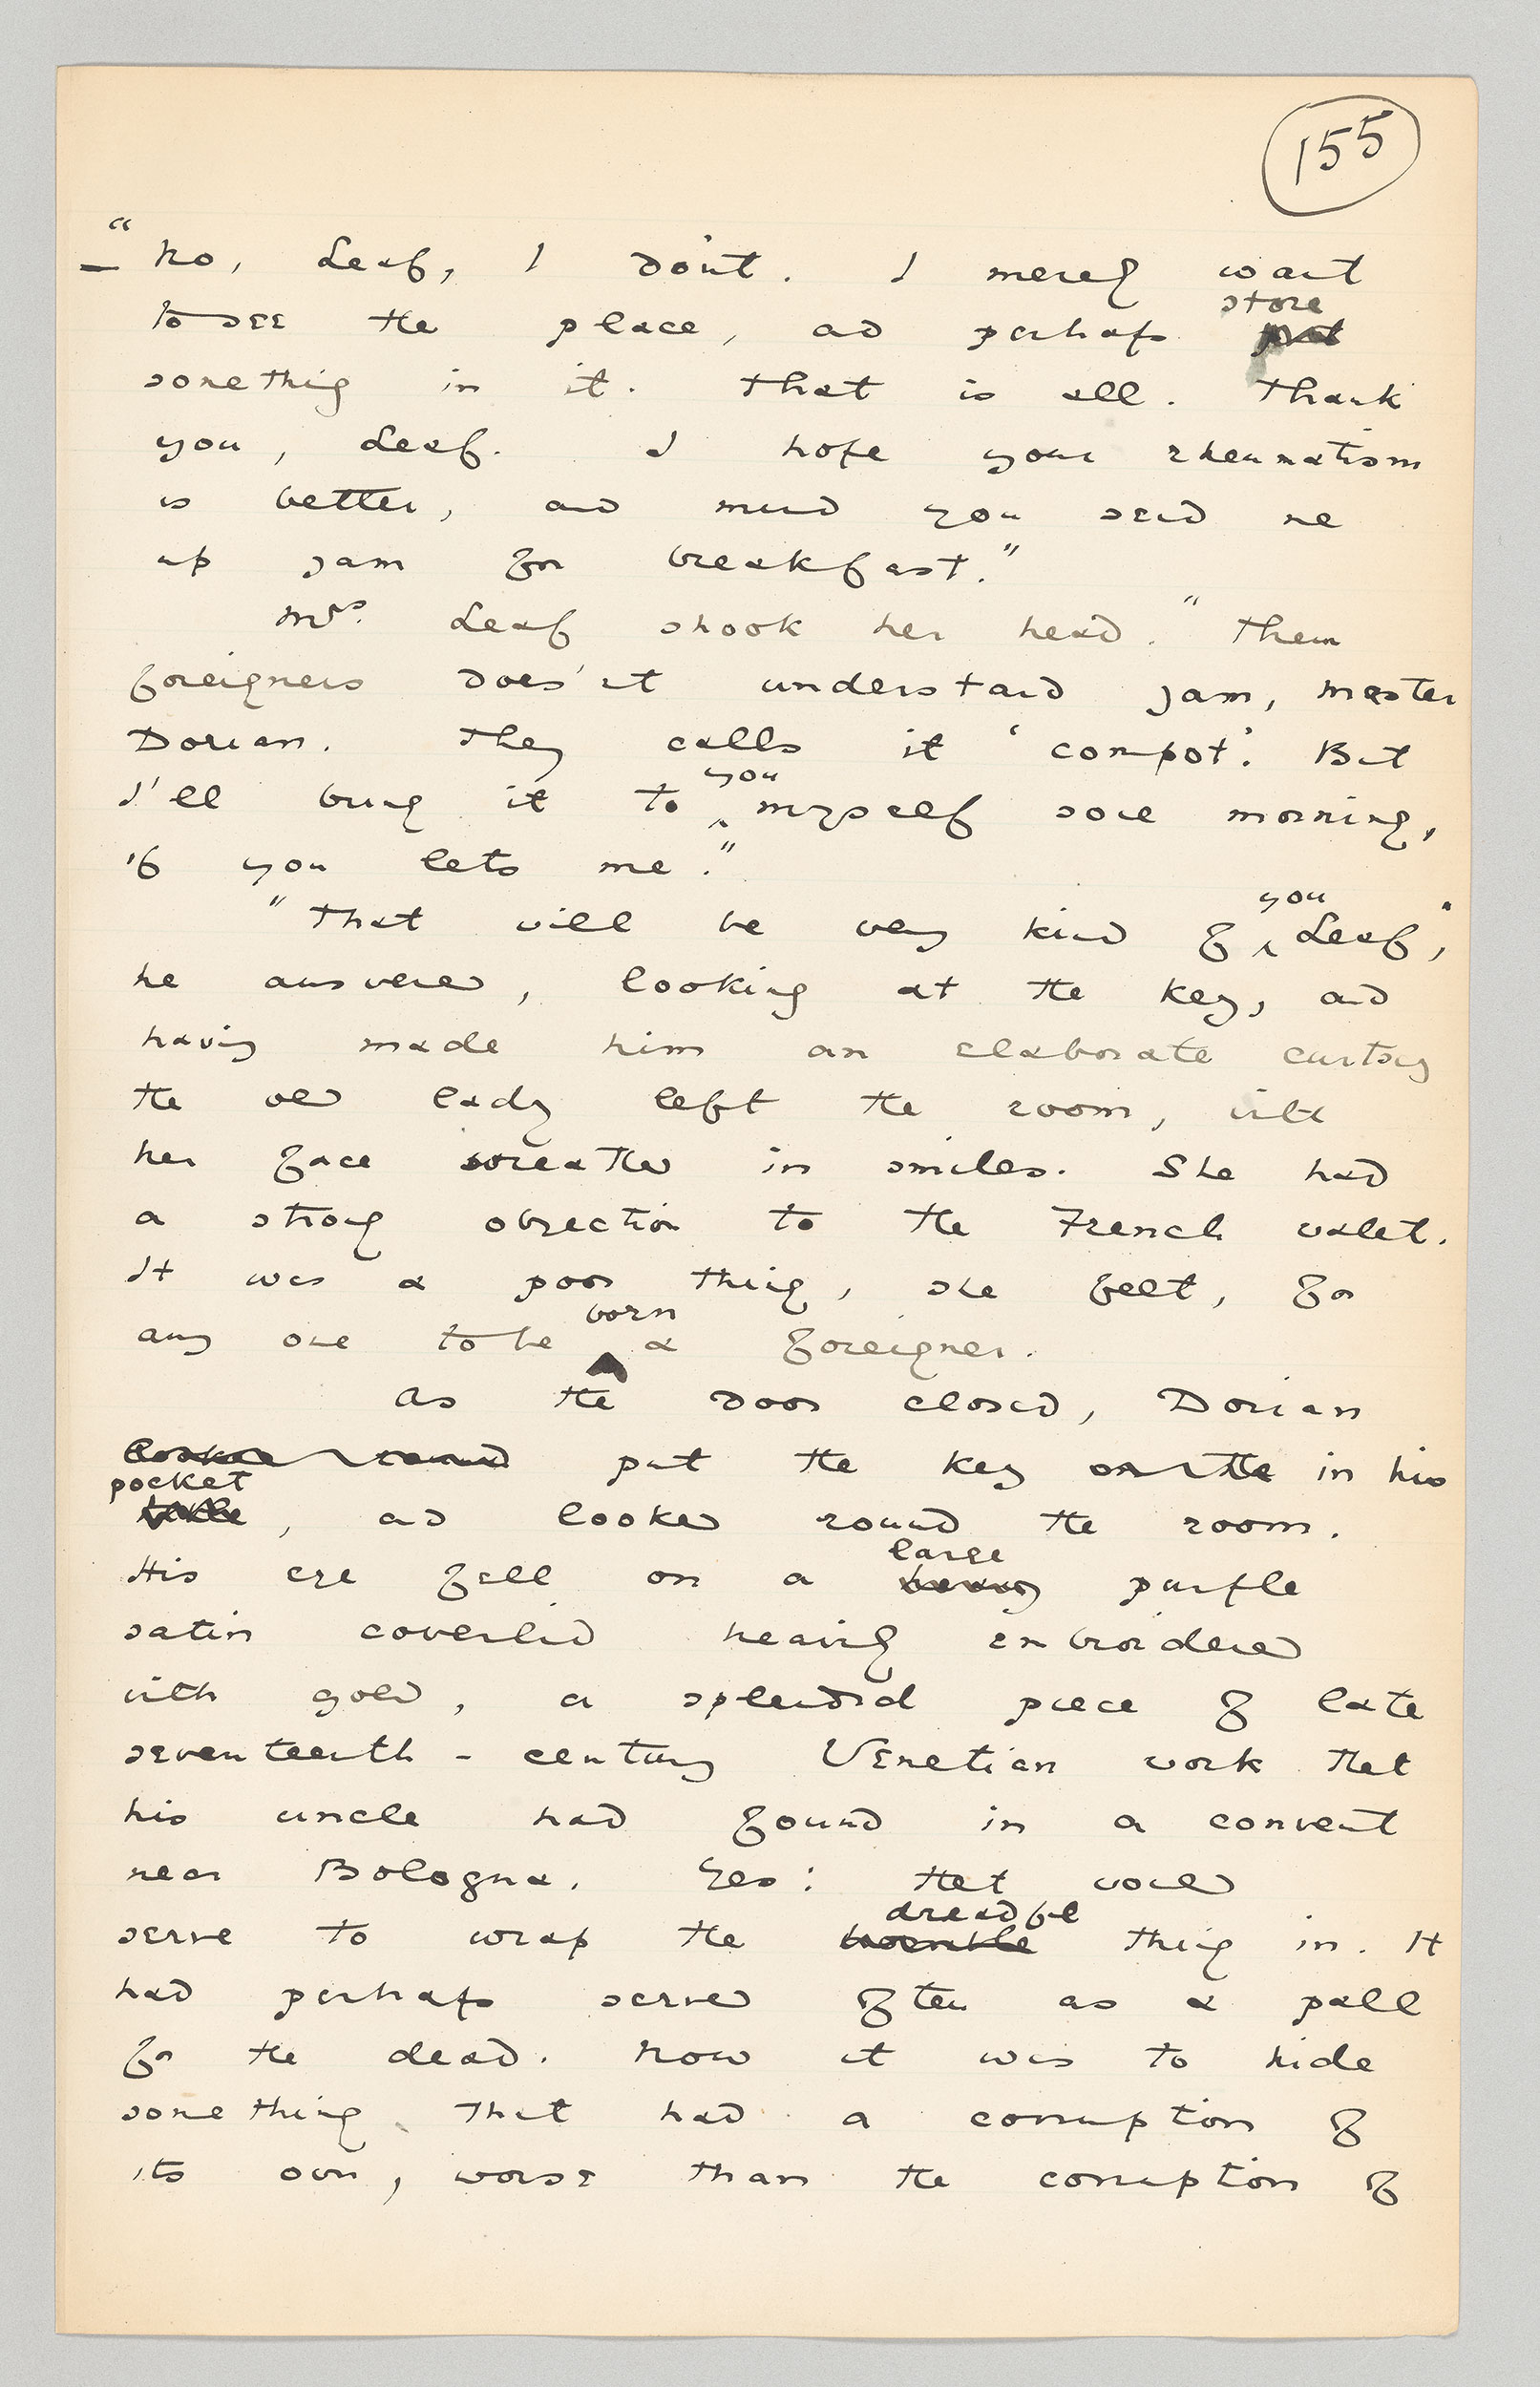 155
— "No, Leaf, I don't. I merely want
to see the place, and perhaps store
something in it. That is all. Thank
you, Leaf. I hope your rheumatism
is better, and mind you send me
up jam for breakfast."
Mrs. Leaf shook her head. "Them
foreigners does'nt understand jam, Master
Dorian. They calls it 'compot'. But
I'll bring it to you myself some morning,
if you lets me."
"That will be very kind of you Leaf",
he answered, looking at the key, and
having made him an elaborate curtsey
the old lady left the room, with
her face wreathed in smiles. She had
a strong objection to the French valet.
It was a poor thing, she felt, for
any one to be born a foreigner.
As the door closed, Dorian
looked round put the key on the in his
pocket table, and looked round the room.
His eye fell on a large heavy purple
satin coverlid heavily embroidered
with gold, a splendid piece of late
seventeenth-century Venetian work that
his uncle had found in a convent
near Bologna. Yes: that would
serve to wrap the dreadful horrible thing in. It
had perhaps served often as a pall
for the dead. Now it was to hide
something that had a corruption of
its own, worse than the corruption of